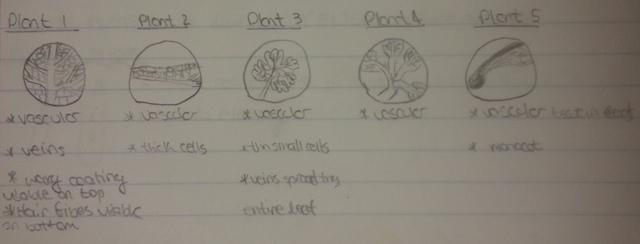 Plant 1 Plant 2 Plant 3 Plant 4 Plant 5
* vascular * vascular * vascular * vascular * vascular
* veins * thick cells small cells * monocot
* waxy coating * veins spread thru
visible on top
* Hair fibes visible entire leaf
on bottom